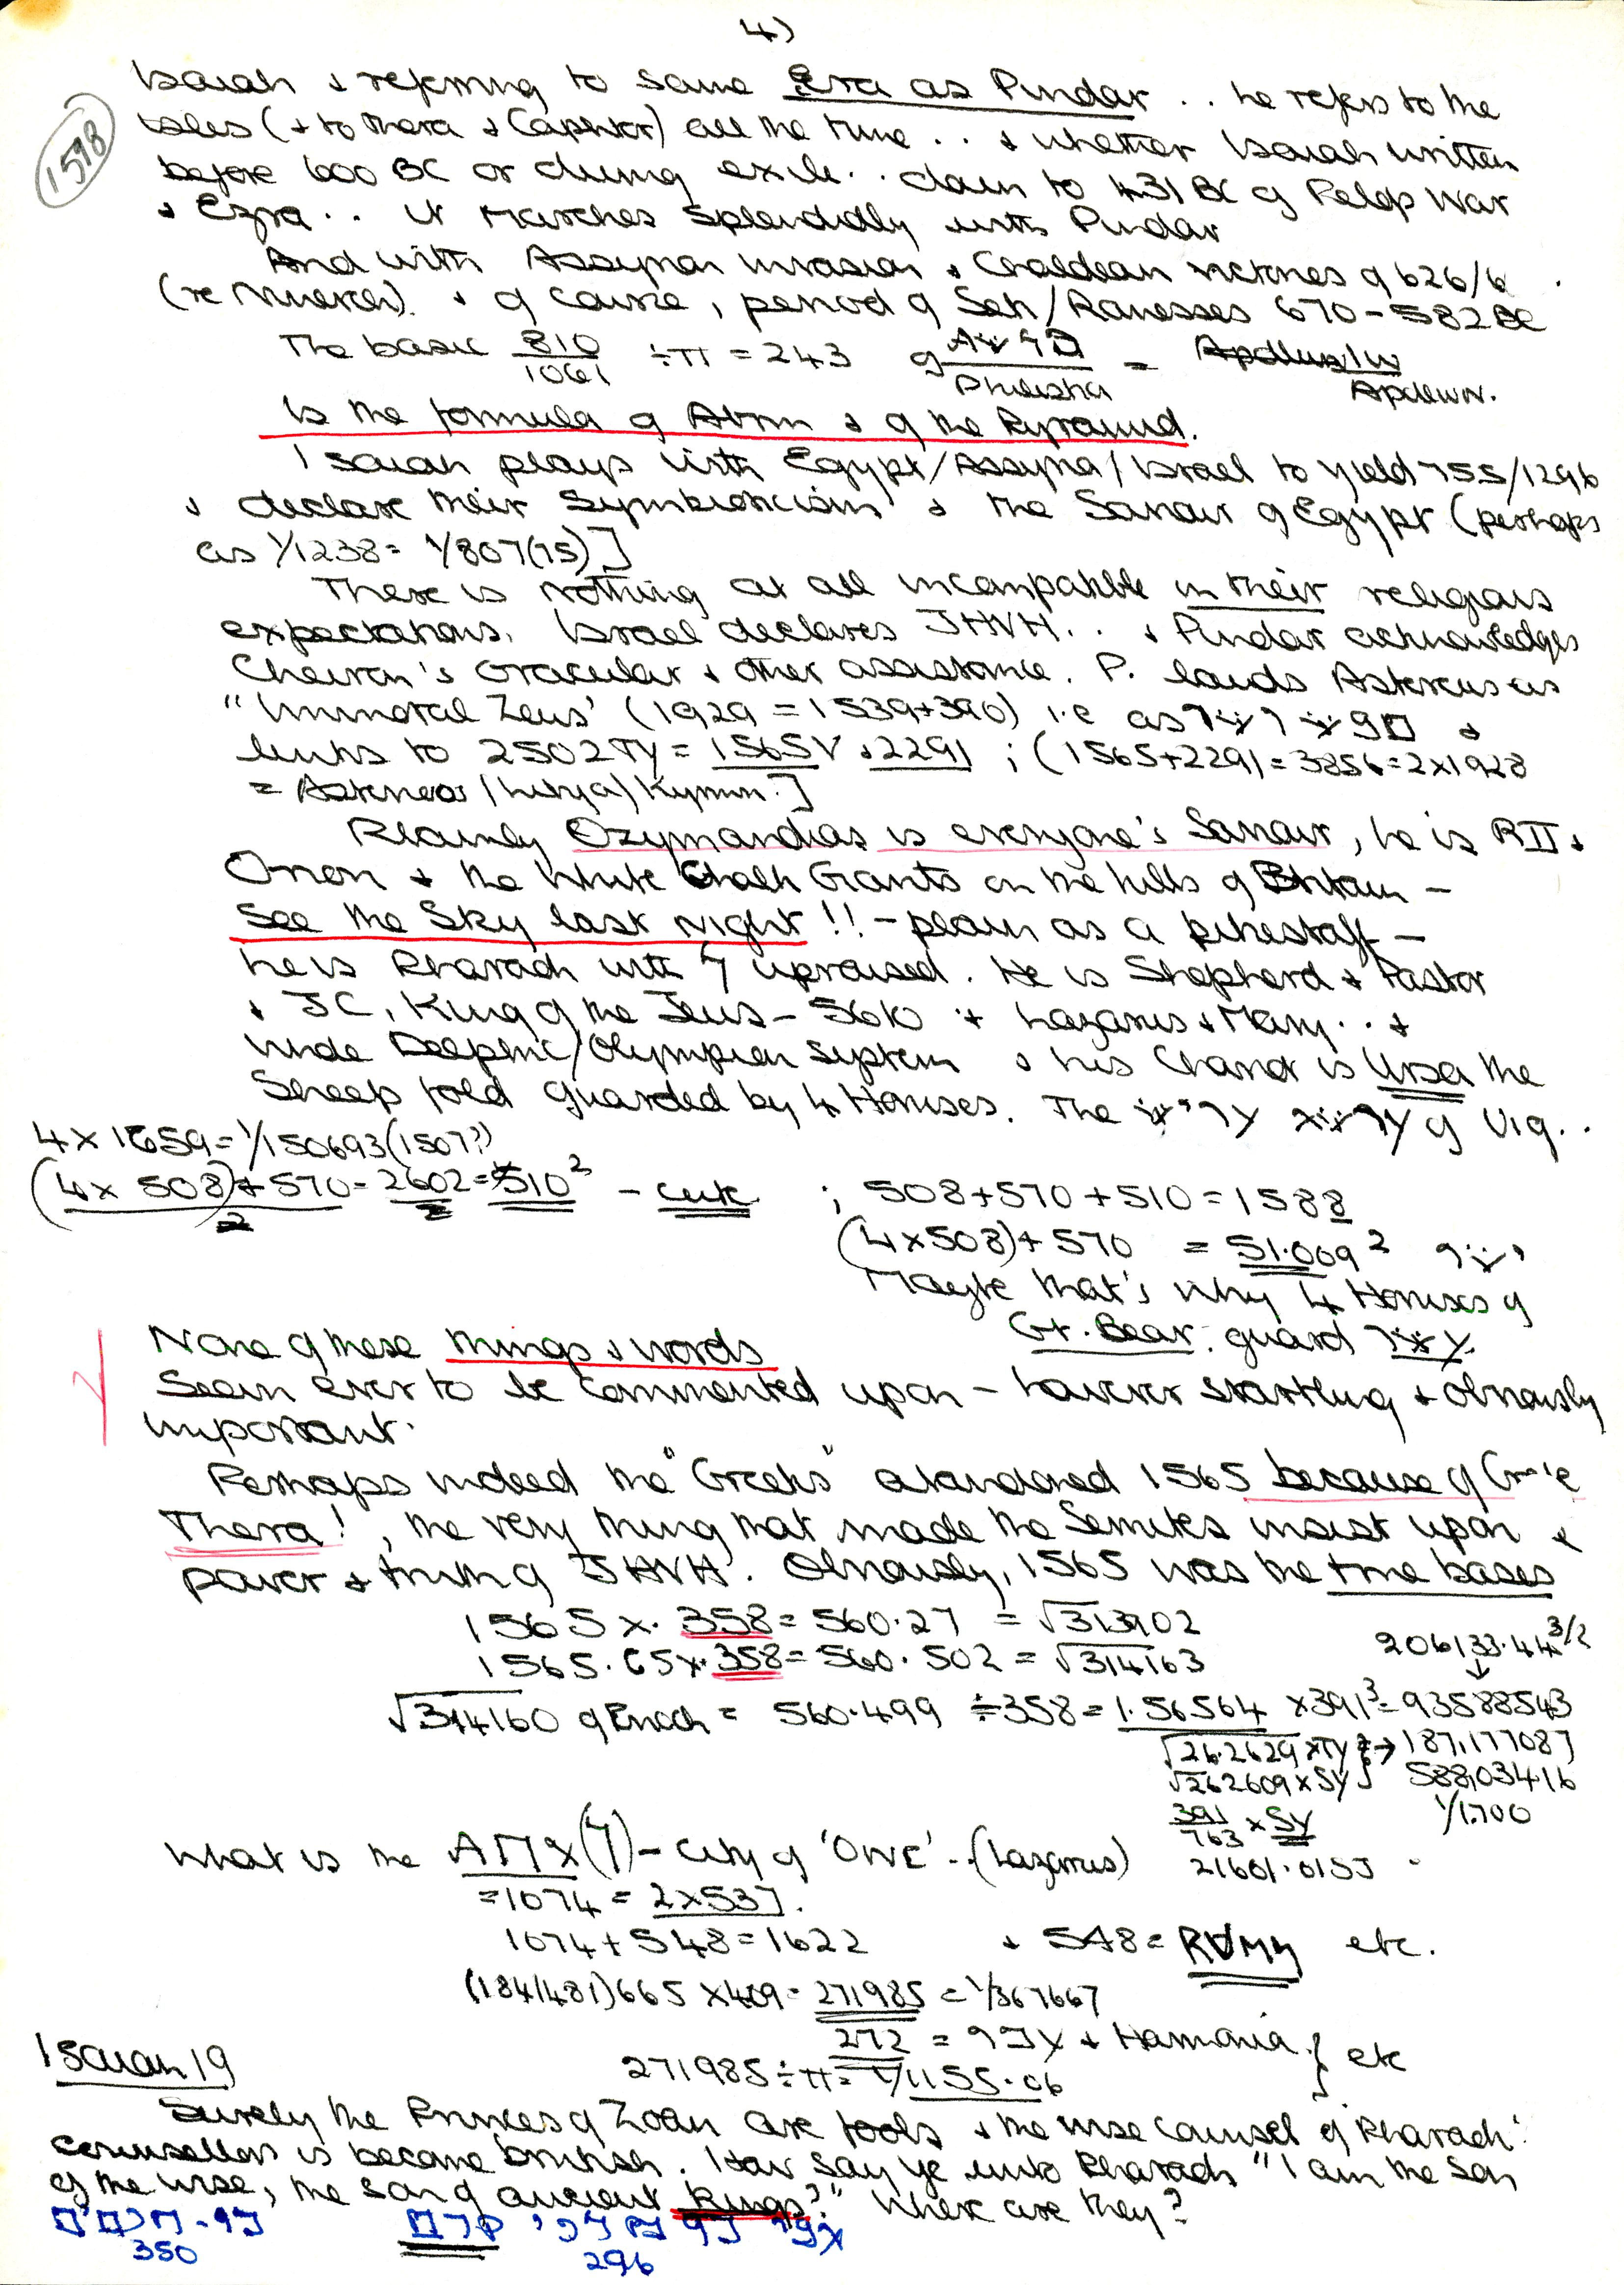 4)
1598
Isaiah & referring to same Era as Pindar .. he refers to the
Isles (& to Thera & Caphtor) all the time .. & whether Isaiah written
before 600 BC or during exile .. down to 431 BC of Pelop War
& Ezra .. it Matches Splendidly with Pindar
And with Assyrian invasion & Chaldean victories of 626/6
(re Nineveh). & of course, period of Seti/Ramesses 670-582 BC
The basic 810/1061 ÷ π = 243 of =
is the formula of Atum & of the Pyramid.
Isaiah plays with Egypt/Assyria/Israel to yield 755/1296
& declare their Symbioticism & the Saviour of Egypt (perhaps
as 1/1238 = 1/807(75)]
There is nothing at all incompatible in their religious
expectations. Israel declares JHVH .. & Pindar acknowledges
Cheiron's Oracular & other assistance. P. lauds as
"Immortal Zeus' (1929 = 1539+390) i.e as &
links to 2502 TY = 1565 V & 2291 ; (1565+2291 = 3856 = 2×1928
= ]
Plainly Ozymandias is everyone's Saviour, he is RII &
Orion & the White Chalk Giants on the hills of Britain -
See the Sky last night !! - plain as a pikestaff -
he is Pharaoh with upraised. He is Shepherd & Pastor
& JC, King of the Jews - 5610 & Lazarus & Mary .. &
whole Delphic/Olympian System & his Chariot is Ursa the
Sheep fold guarded by 4 Horuses. The of Vig..
4 × 1659 = 1/150693 (1507?)
(4 × 508) + 570 = 2602 = 510² - cute ; 508+570+510 = 1588
(4×508) + 570 = 51.009²
Maybe that's why 4 Horuses of
Gt. Bear. guard
None of these things & words
Seem ever to be commented upon - however startling & obviously
important.
Perhaps indeed the "Greeks" abandoned 1565 because of
Thera!, the very thing that made the Semites insist upon
power & truth of JHVH. Obviously, 1565 was the true basis
1565 × .358 = 560.27 = √313902
1565.65 × .358 = 560.502 = √314163
206133.44 3/2
√314160 of Enoch = 560.499 ÷ 358 = 1.56564 × 391³ = 93588543
√26.2629 × TY → 187.177087
√262609 × SY 588.03416
391/763 × SY 1/1700
What is the - City of 'ONE' .. (Lazarus) 21601.0155
= 1074 = 2×537.
1074 + 548 = 1622 & 548 = etc.
(1841481) 665 × 409 = 271985 = 1/367667
272 = & Harmonia } etc
271985 ÷ π = 1/1155.06
Isaiah 19
Surely the Princes of Zoan are fools & the wise Counsel of Pharaoh's
Counsellors is become brutish. How say ye unto Pharaoh "I am the son
of the wise, the son of ancient Kings?" Where are they?
350 296